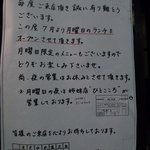 毎度ご来店頂き誠に有り難とう
ございます。
この度7月より月曜日のランチを
オープンさせて頂きます。
月曜日限定のメニューもございますので
どうぞお楽しみ下さいませ。
尚、夜の営業はお休みとさせて頂きます。
月曜日の夜は姉妹店"ひところ"が
営業しております。
皆様のご来店を心よりお待ちしております。